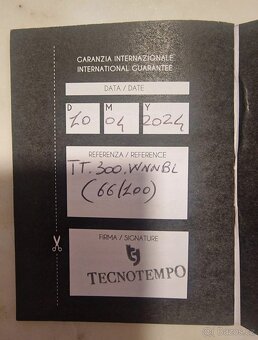 GARANZIA INTERNAZIONALE
INTERNATIONAL GUARANTEE
DATA / DATE
D M Y
10 04 2024
REFERENZA / REFERENCE
TT.300.WNNBL
(66/100)
FIRMA / SIGNATURE
TECNOTEMPO